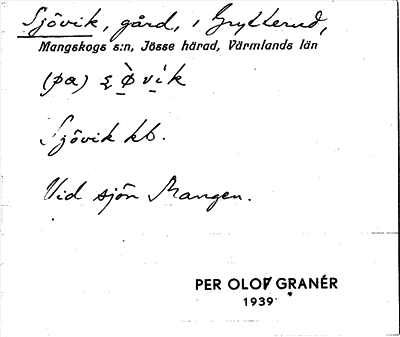 Sjövik, gård, i Grytterud,
Mangskogs s:n, Jösse härad, Värmlands län
(på) ʂø̀vik
Sjövik kb.
Vid sjön Mangen.
PER OLOF GRANÉR
1939